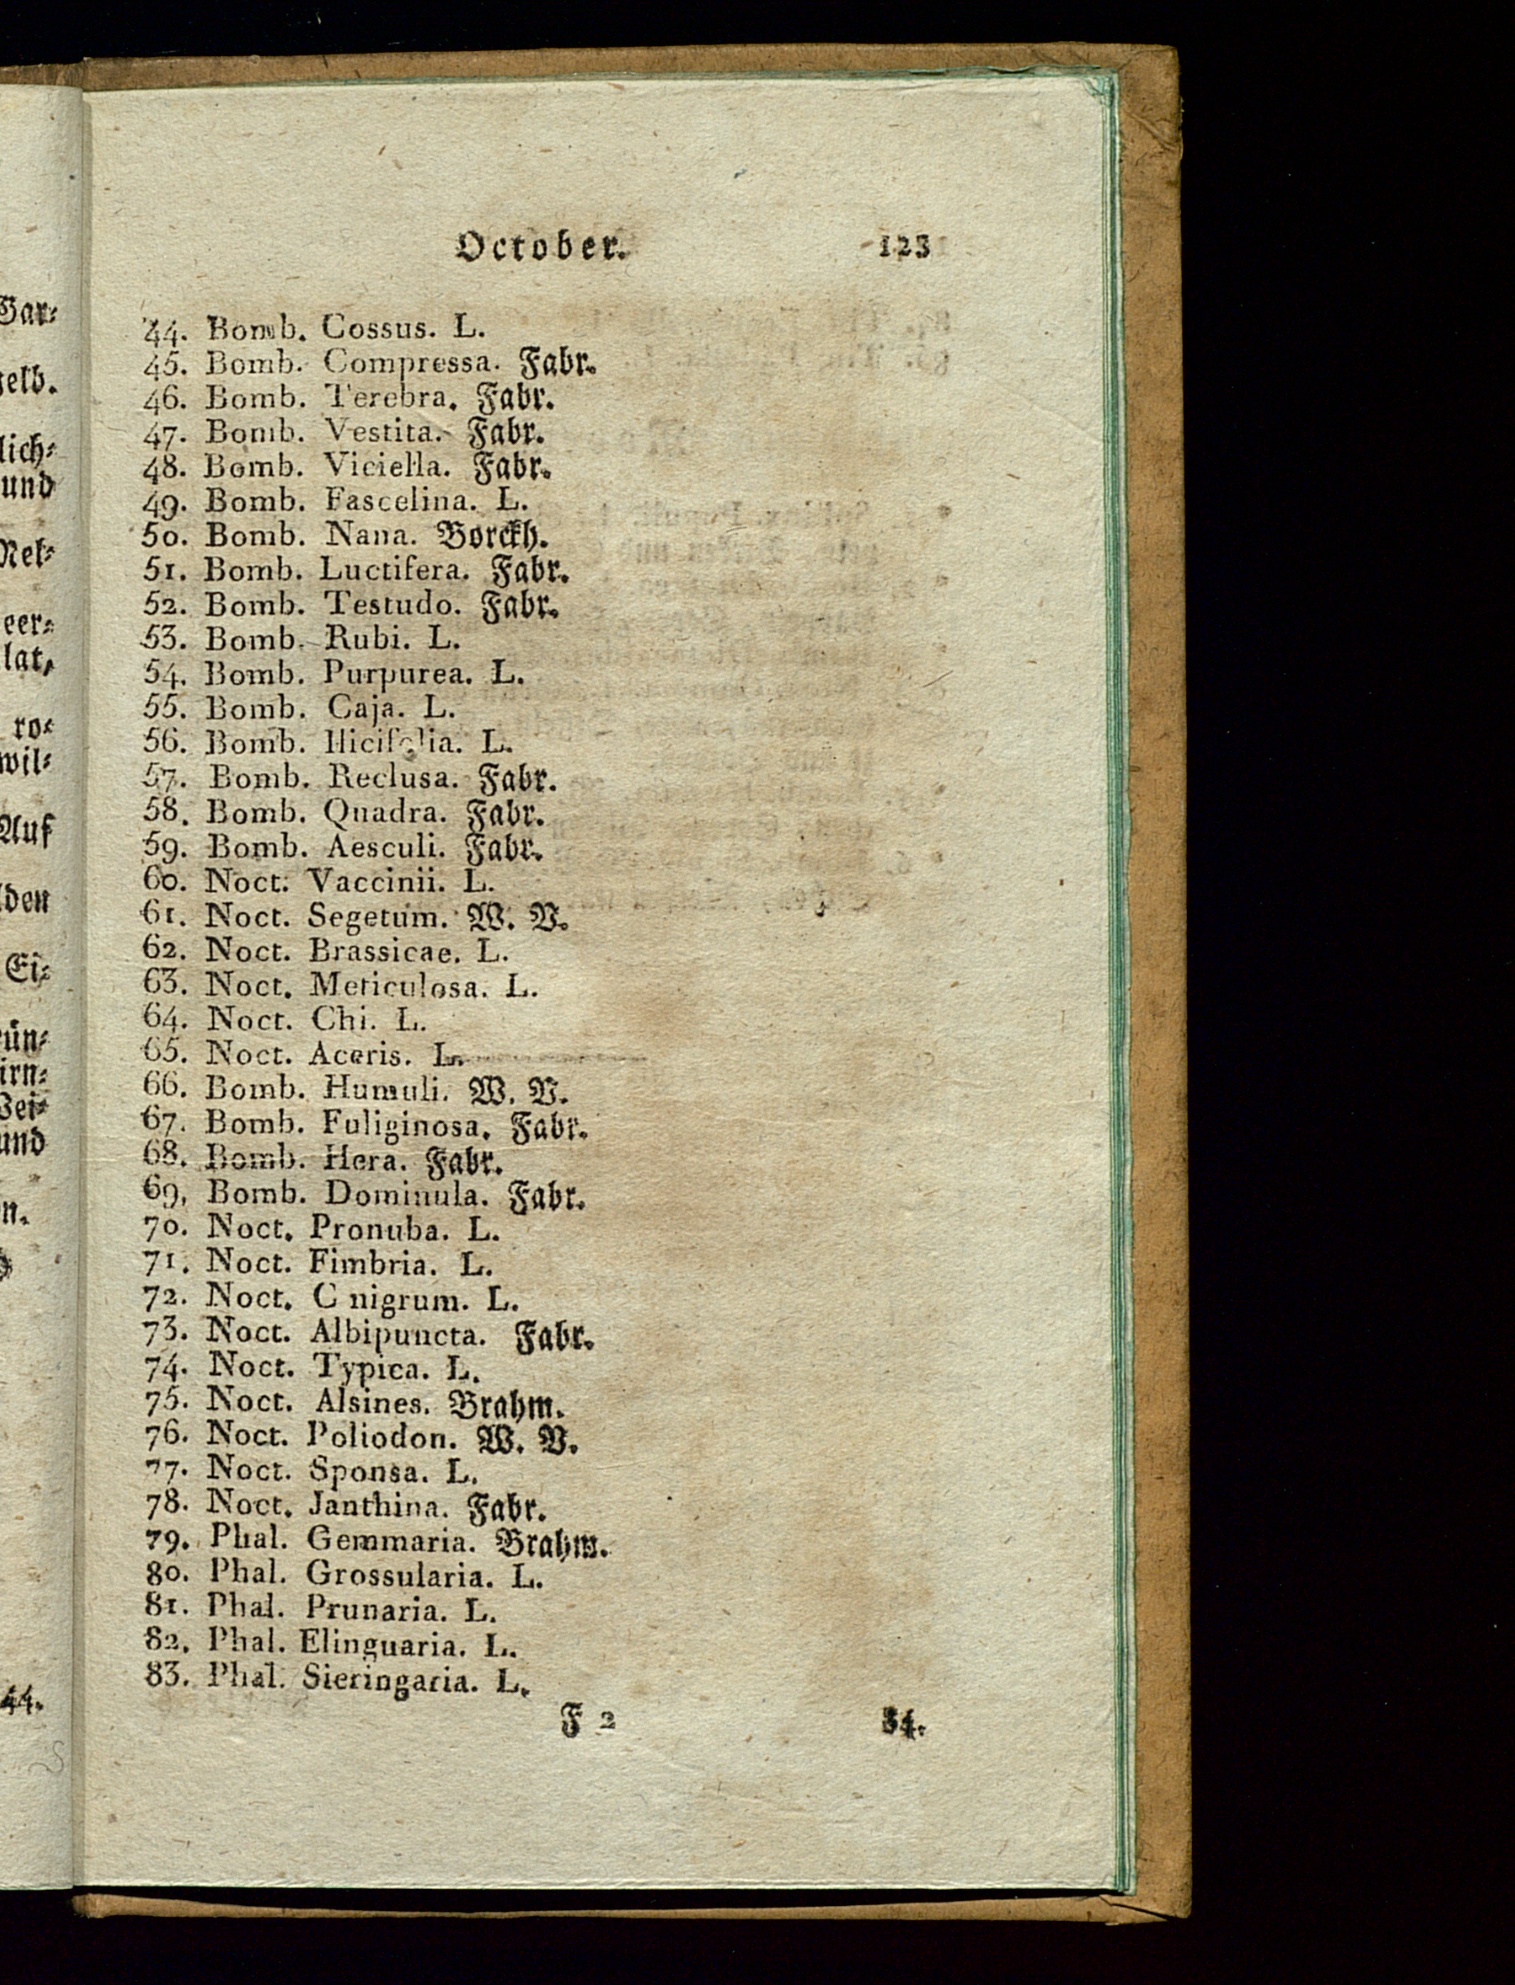 October. 123
44. Bomb. Cossus. L.
45. Bomb. Compressa. Fabr.
46. Bomb. Terebra. Fabr.
47. Bomb. Vestita. Fabr.
48. Bomb. Viciella. Fabr.
49. Bomb. Fascelina. L.
50. Bomb. Nana. Borckh.
51. Bomb. Luctifera. Fabr.
52. Bomb. Testudo. Fabr.
53. Bomb. Rubi. L.
54. Bomb. Purpurea. L.
55. Bomb. Caja. L.
56. Bomb. Ilicifolia. L.
57. Bomb. Reclusa. Fabr.
58. Bomb. Quadra. Fabr.
59. Bomb. Aesculi. Fabr.
60. Noct. Vaccinii. L.
61. Noct. Segetum. W. V.
62. Noct. Brassicae. L.
63. Noct. Meticulosa. L.
64. Noct. Chi. L.
65. Noct. Aceris. L.
66. Bomb. Humuli. W. V.
67. Bomb. Fuliginosa. Fabr.
68. Bomb. Hera. Fabr.
69. Bomb. Dominula. Fabr.
70. Noct. Pronuba. L.
71. Noct. Fimbria. L.
72. Noct. C nigrum. L.
73. Noct. Albipuncta. Fabr.
74. Noct. Typica. L.
75. Noct. Alsines. Brahm.
76. Noct. Poliodon. W. V.
77. Noct. Sponsa. L.
78. Noct. Janthina. Fabr.
79. Phal. Gemmaria. Brahm.
80. Phal. Grossularia. L.
81. Phal. Prunaria. L.
82. Phal. Elinguaria. L.
83. Phal. Sieringaria. L.
F 2 84.